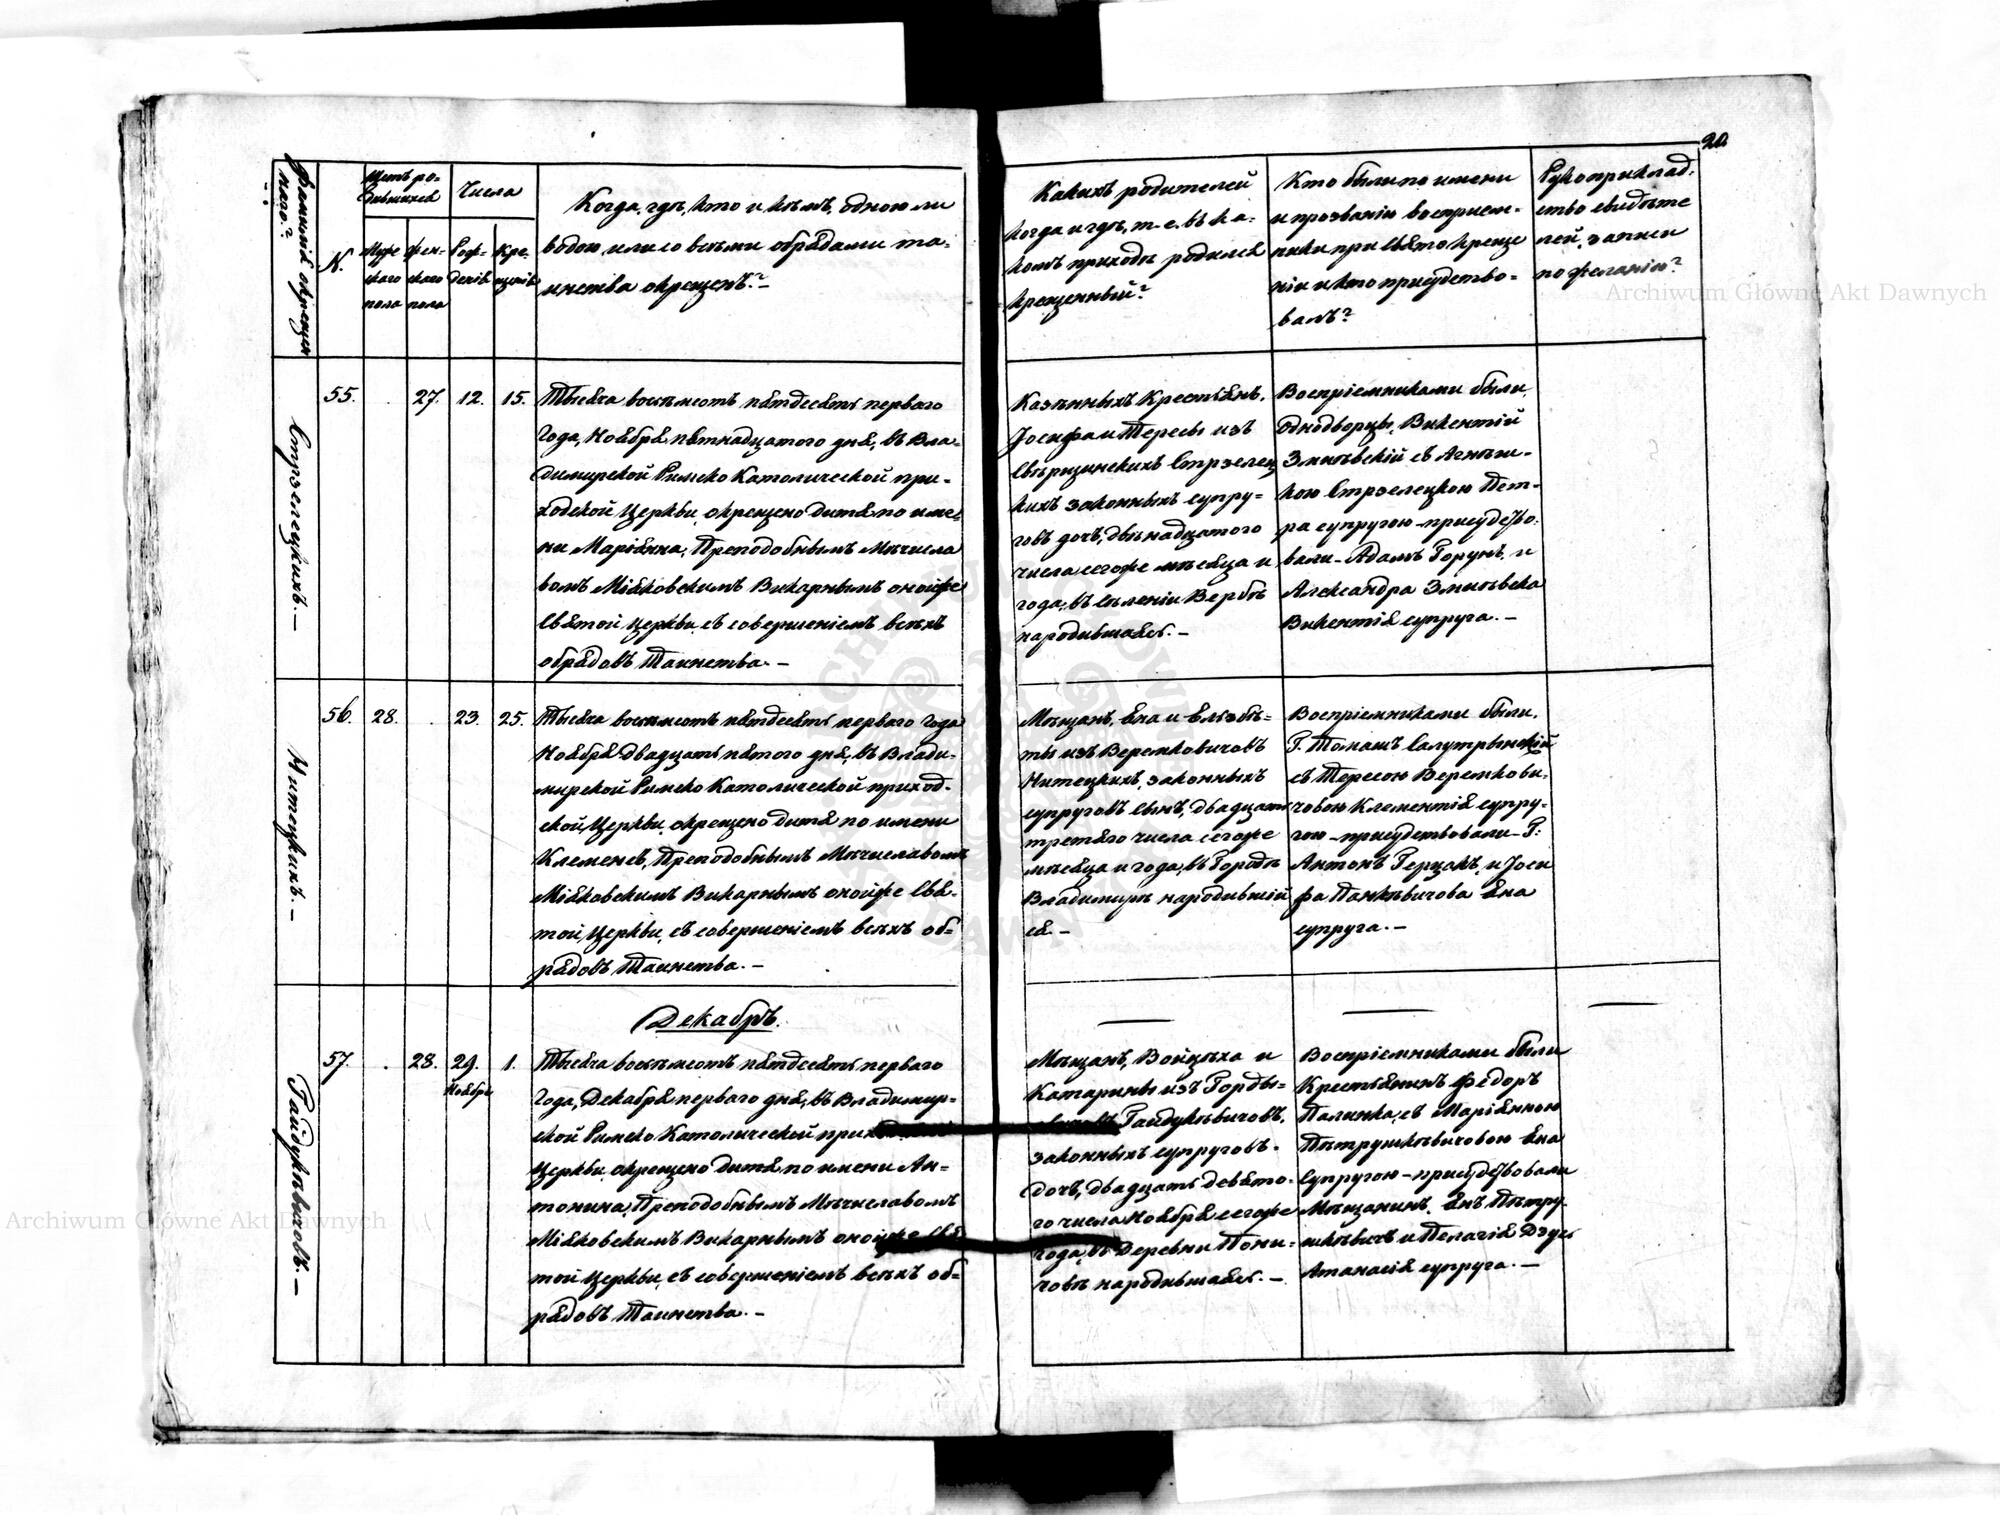 20.
Фамилія окрещен
наго?
N.
Щетъ ро-
дившихся
Муже
скаго
пола
Жен-
скаго
пола
Числа
Рож-
денія
Кре-
щенія
Когда, гдѣ, кто и кѣмъ, одною ли
водою, или со всѣми обрядами та-
инства окрещенъ?-
Какихъ родителей
когда и гдѣ, т-е. въ ка-
комъ приходѣ родился
крещенный?
Кто были по имени
и прозванію восприем-
ники при свято крeще
ніи и кто присудство-
валъ?
Рукоприклад-
ство свидѣте
лей, записи
по желанію?
Archiwum Główne Akt Dawnych
Стрзелецкихъ.-
55.
27.
12.
15.
Тысяча восѣмсотъ пятдесятъ перваго
Года, Ноября пятнадцатого дня, въ Вла-
димирской Римско Католической при-
ходской Церкви, окрещено дитя по име-
ни Маріянна, Преподобнымъ Мѣчисла
вомъ Міяковскимъ Викарнымъ онойже
Святой Церкви, съ совершеніемъ всѣхъ
обрядовъ Таинства.-
Казѣнныхъ Крестьянъ,
Іосифа и Тересы изъ
Свѣрщинскихъ Стрзелец
кихъ законныхъ супру-
говъ дочь, двѣнадцатого
числа сегоже мѣсяца и
года, въ Сѣленіи Вербѣ
народившаяся.-
Восприемниками были
однодворцы, Викентій
Змиѣвскій съ Агнѣш-
кою Стрзелецкою Пет-
ра супругою-присудство-
вали-Адамъ Горунъ, и
Александра Змиѣвска
Викентія супруга.-
Нитецкихъ.-
56.
28.
23.
25.
Тысяча восѣмсотъ пятдесятъ перваго года
Ноября двадцать пятого дня, въ Влади-
мирской Римско Католической приход-
ской Церкви, окрещено дитя по имени
Клеменсъ, Преподобнымъ Мѣчиславомъ
Міяковскимъ Викарнымъ онойже Свя-
той Церкви, съ совершеніемъ всѣхъ об-
рядовъ Таинства.-
Мѣщанъ, Яна и Ельзбѣ-
ты изъ Веремковичовъ
Нитецкихъ, законныхъ
супруговъ сынъ, двадцать
третяго числа сегоже
мѣсяца и года, въ Городѣ
Владимирѣ народившій
ся.-
Восприемниками были,
Г. Томашъ Салутрынскій
съ Тересою Веремкови-
човою Клементія супру-
гою-присудствовали-Г:
Антонъ Герцокъ, и Іосе
фа Панкѣвичова Яна
супруга.-
Гайдукѣвичовъ.-
Декабрь.
57.
28.
29.
Ноябрь
1.
Тысяча восѣмсотъ пятдесятъ перваго
Года, Декабря перваго дня, въ Владимир-
ской Римско Католической приходской
Церкви, окрещено дитя по имени Ан-
тонина, Преподобнымъ Мѣчиславомъ
Міяковскимъ Викарнымъ онойже Свя
той Церкви, съ совершеніемъ всѣхъ об-
рядовъ Таинства.-
Мѣщанъ, Войцѣха и
Катарины изъ Горды-
Гайдукѣвичовъ,
законныхъ супруговъ.
дочь, двадцать девято-
го числа Ноября сегоже
года, въ Деревни Пони-
човѣ народившаяся.-
Восприемниками были
Крестьянинъ Ѳедоръ
Палинка, съ Маріянною
Пѣтрушкѣвичовою Яна
Супругою-присудствовали
Мѣщанинъ, Янъ Пѣтру
шкѣвичъ и Пелагія Дзусь
Атанасія супруга.-
Archiwum Główne Akt Dawnych